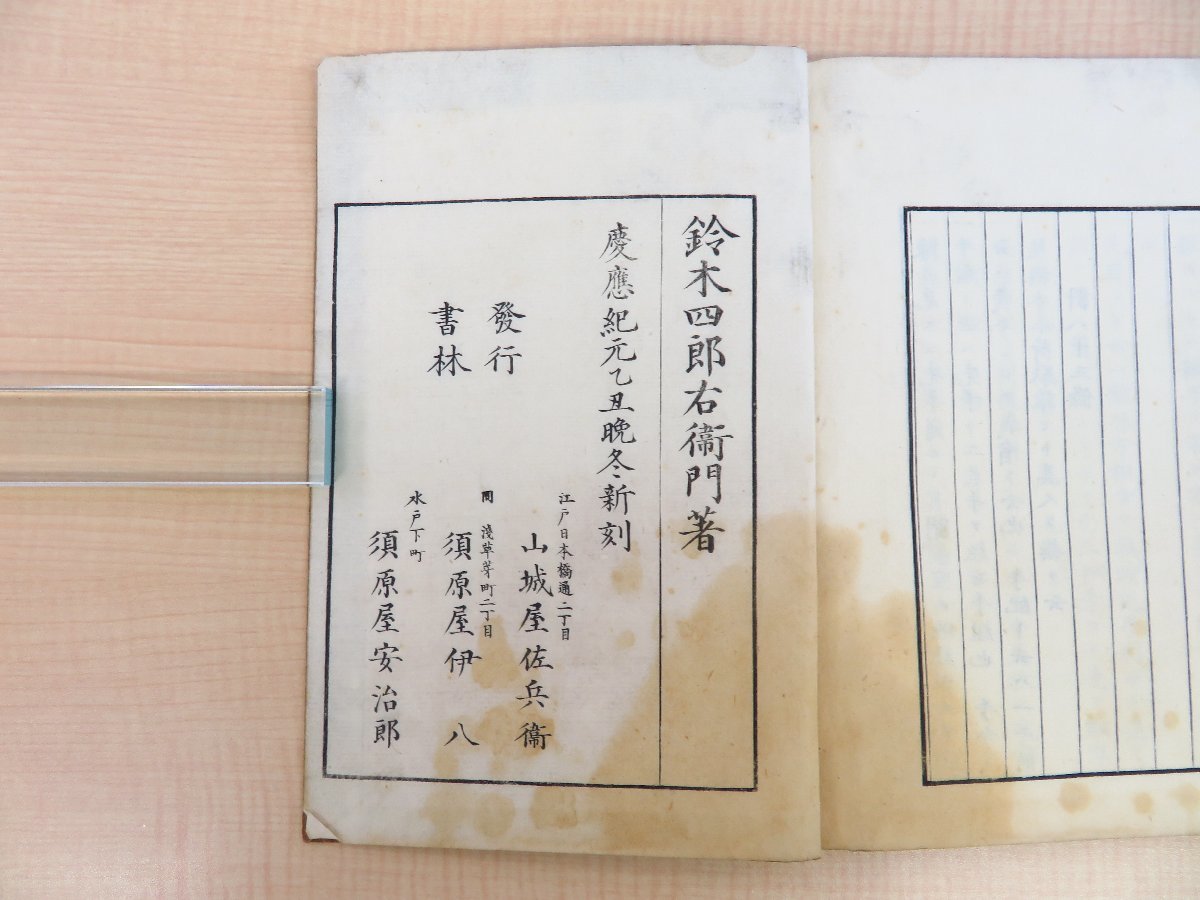 鈴木四郎右衞門著
慶應紀元乙丑晩冬新刻
發行
書林
江戸日本橋通二丁目
山城屋佐兵衞
同 淺草茅町二丁目
須原屋伊八
水戸下町
須原屋安治郎